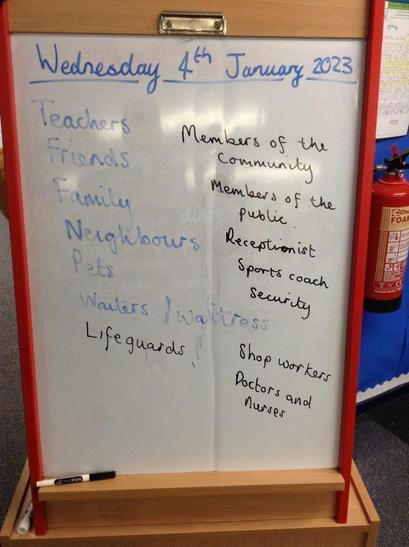 Wednesday 4th January 2023
Teachers
Friends
Family
Neighbours
Pets
Waiters / Waitress
Lifeguards
Members of the
Community
Members of the
public
Receptionist
Sports coach
Security
Shop workers
Doctors and
Nurses
FOAM